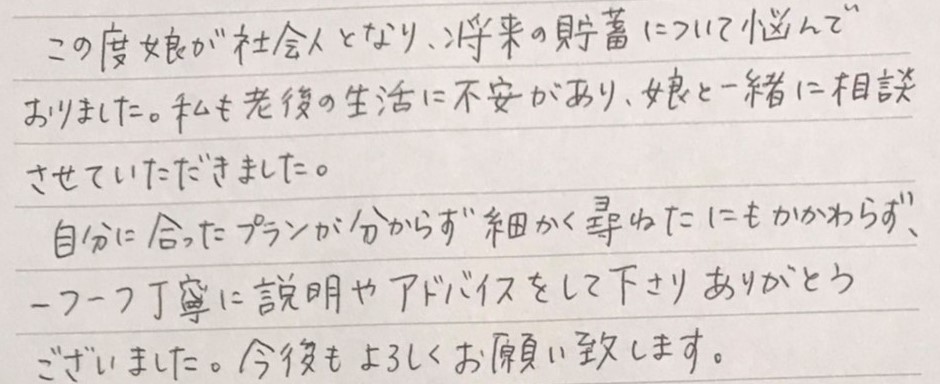 この度娘が社会人となり、将来の貯蓄について悩んで
おりました。私も老後の生活に不安があり、娘と一緒に相談
させていただきました。
自分に合ったプランが分からず細かく尋ねたにもかかわらず、
一つ一つ丁寧に説明やアドバイスをして下さりありがとう
ございました。今後もよろしくお願い致します。